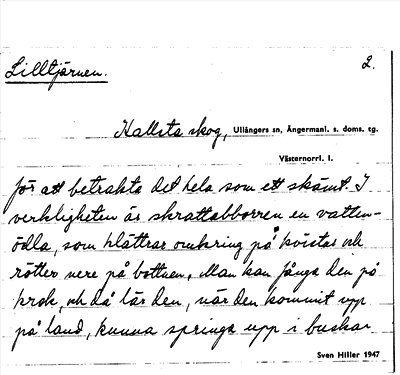 Lilltjärnen.
2.
Hallsta skog, Ullångers sn, Ångermanl. s. doms. tg.
Västernorrl. l.
för att betrakta det hela som ett skämt. I
verkligheten är skrattabborren en vatten-
ödla, som klättrar omkring på kvistar och
rötter nere på bottnen. Man kan fånga den på
krok, och då lär den, när den kommit upp
på land, kunna springa upp i buskar
Sven Hiller 1947